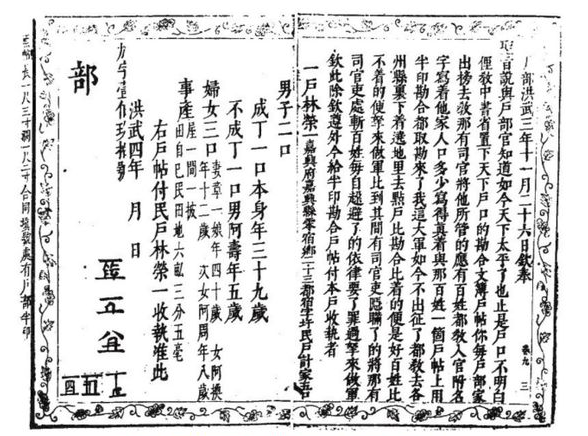 部洪武三年十一月二十六日欽奉
卷九 三
聖旨說與戶部官知道如今天下太平了也止是戶口不明白
俚教中書省置下天下戶口的勘合文簿戶帖你每戶部家
出榜去教那有司官將他所管的應有百姓都教入官附名
字寫着他家人口多少寫得真着與那百姓一個戶帖上用
半印勘合都取勘來了我這大軍如今不出征了都教去各
州縣裏下着遶地里去點戶比勘合比着的便是好百姓比
不着的便拏來做軍比到其間有司官吏隱瞞了的將那有
司官吏處斬百姓每自趓避了的依律要了罪過拏來做軍
欽此除欽遵外今給半印勘合戶帖付本戶收執者
一戶林榮一嘉興府嘉興縣零宿鄉二十三都宿字圩民戶計家五口
男子二口
成丁一口本身年三十九歲
不成丁一口男阿壽年五歲
婦女三口妻章一娘年四十歲 女阿換年十二歲 次女阿周年八歲
事產屋一間一披 田自己民田地六畝三分五毫
右戶帖付民戶林榮一收執准此
洪武四年 月 日
部
長一尺三寸闊一尺二寸合同